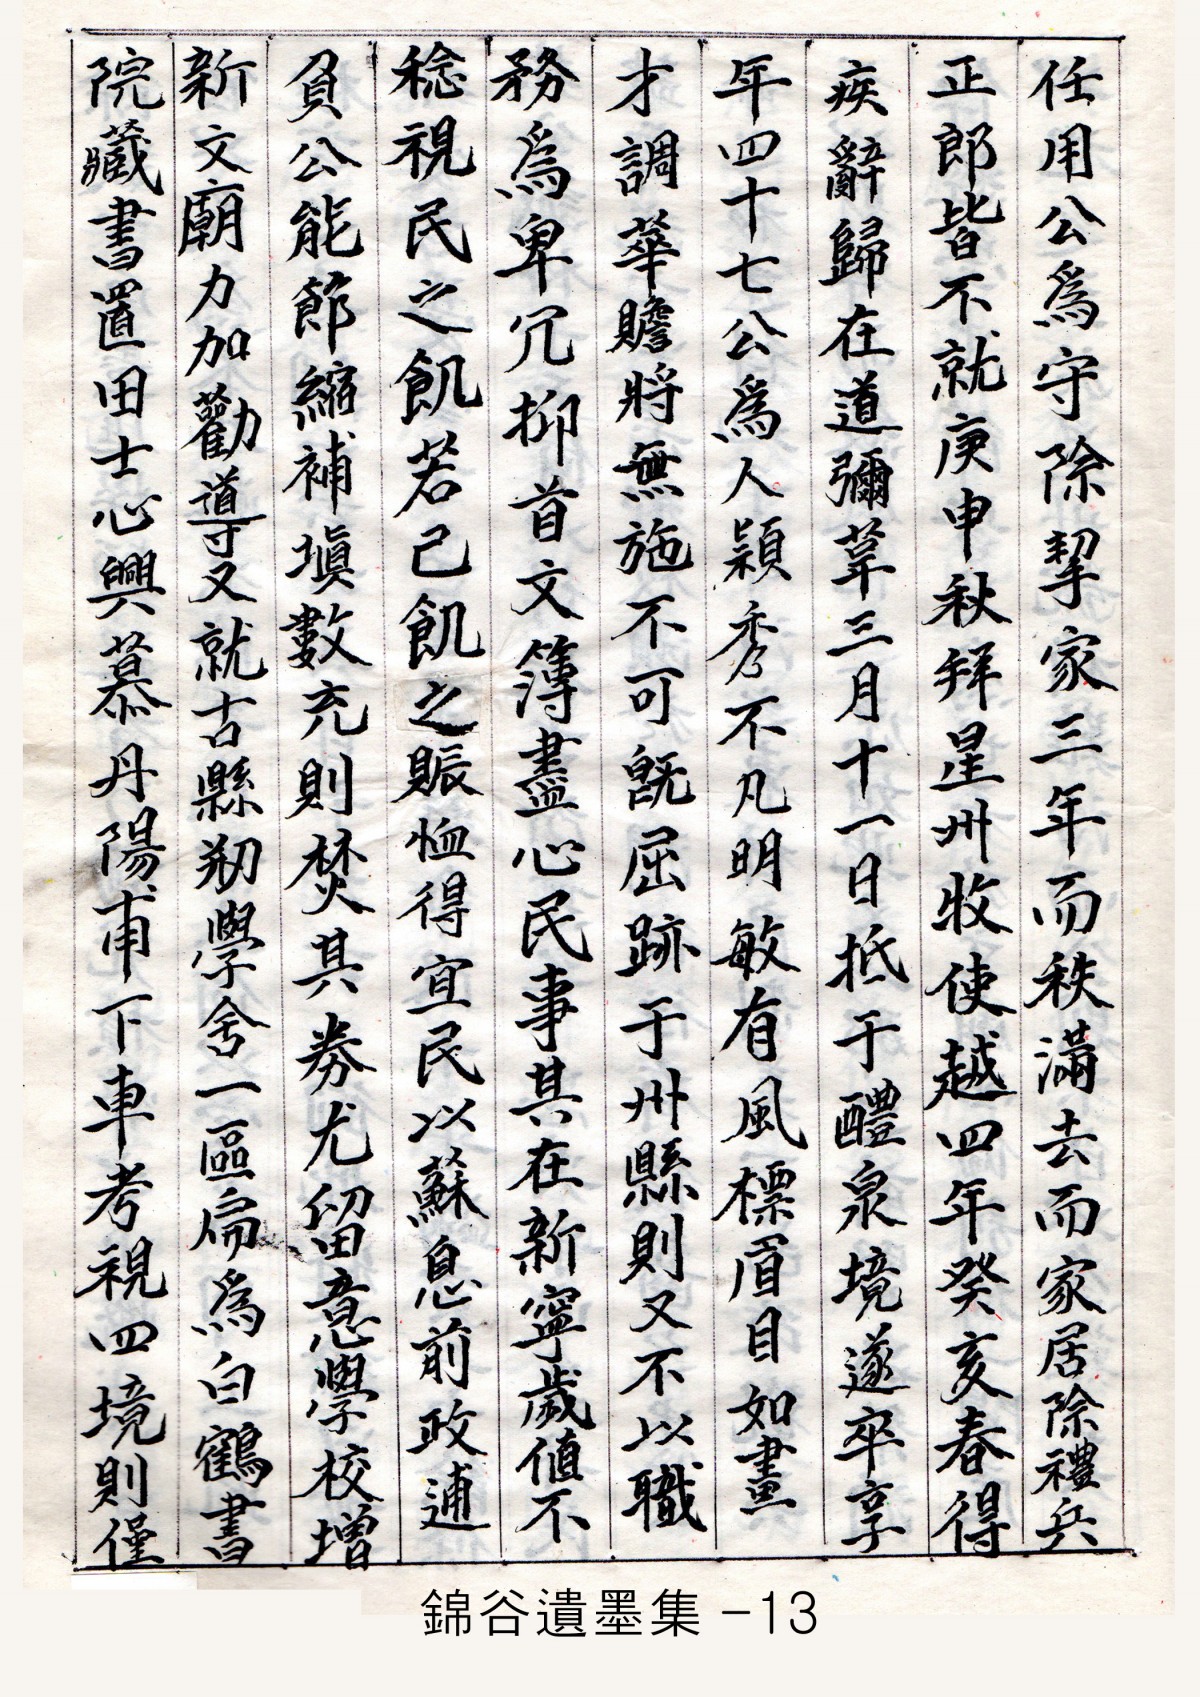 任用公爲守除挈家三年而秩滿去而家居除禮兵
正郎皆不就庚申秋拜星州牧使越四年癸亥春得
疾辭歸在道彌革三月十一日抵于醴泉境遂卒享
年四十七公爲人穎秀不凡明敏有風標眉目如畫
才調華贍將無施不可旣屈跡于州縣則又不以職
務爲卑冗抑首文簿盡心民事其在新寧歲値不
稔視民之飢若己飢之賑恤得宜民以蘇息前政逋
負公能節縮補塡數充則焚其券尤留意學校增
新文廟力加勸導又就古縣刱學舍一區扁爲白鶴書
院藏書置田士心興慕丹陽甫下車考視四境則僅
錦谷遺墨集 -13